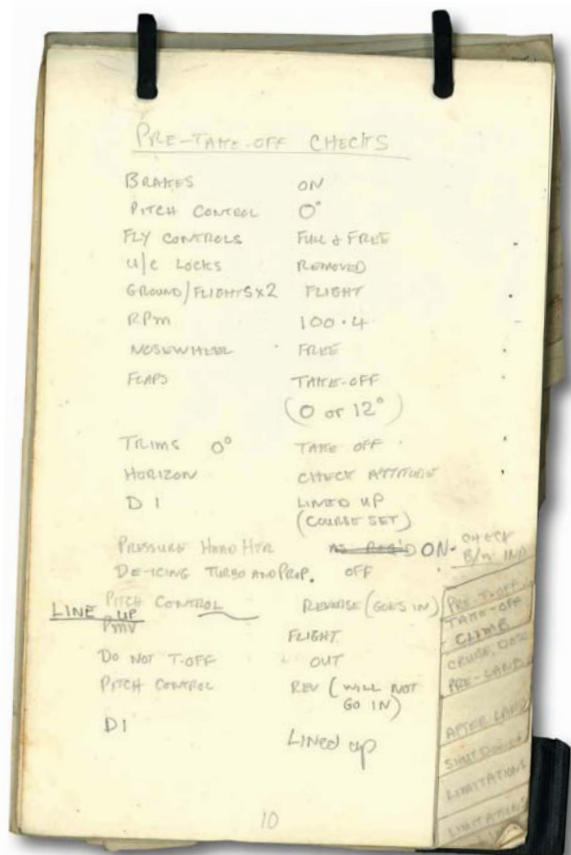 PRE-TAKE-OFF CHECKS
BRAKES ON
PITCH CONTROL 0°
FLY CONTROLS FULL & FREE
U/C LOCKS REMOVED
GROUND/FLIGHTS X2 FLIGHT
RPM 100.4
NOSEWHEEL FREE
FLAPS TAKE-OFF
(0 or 12°)
TRIMS 0° TAKE OFF
HORIZON CHECK ATTITUDE
D I LINED UP
(COURSE SET)
PRESSURE HEAD HTR AS REQ'D ON - CHECK
B/n. IND
DE-ICING TURBO AND PROP. OFF
LINE UP
PITCH CONTROL REVERSE (GOES IN)
PMV FLIGHT
DO NOT T-OFF OUT
PITCH CONTROL REV (WILL NOT
GO IN)
DI LINED up
10
PRE-T-OFF
TAKE-OFF
CLIMB
CRUISE, DESC
PRE-LAND
AFTER LAND
SHUT DOWN
LIMITATIONS
LIMITATIONS